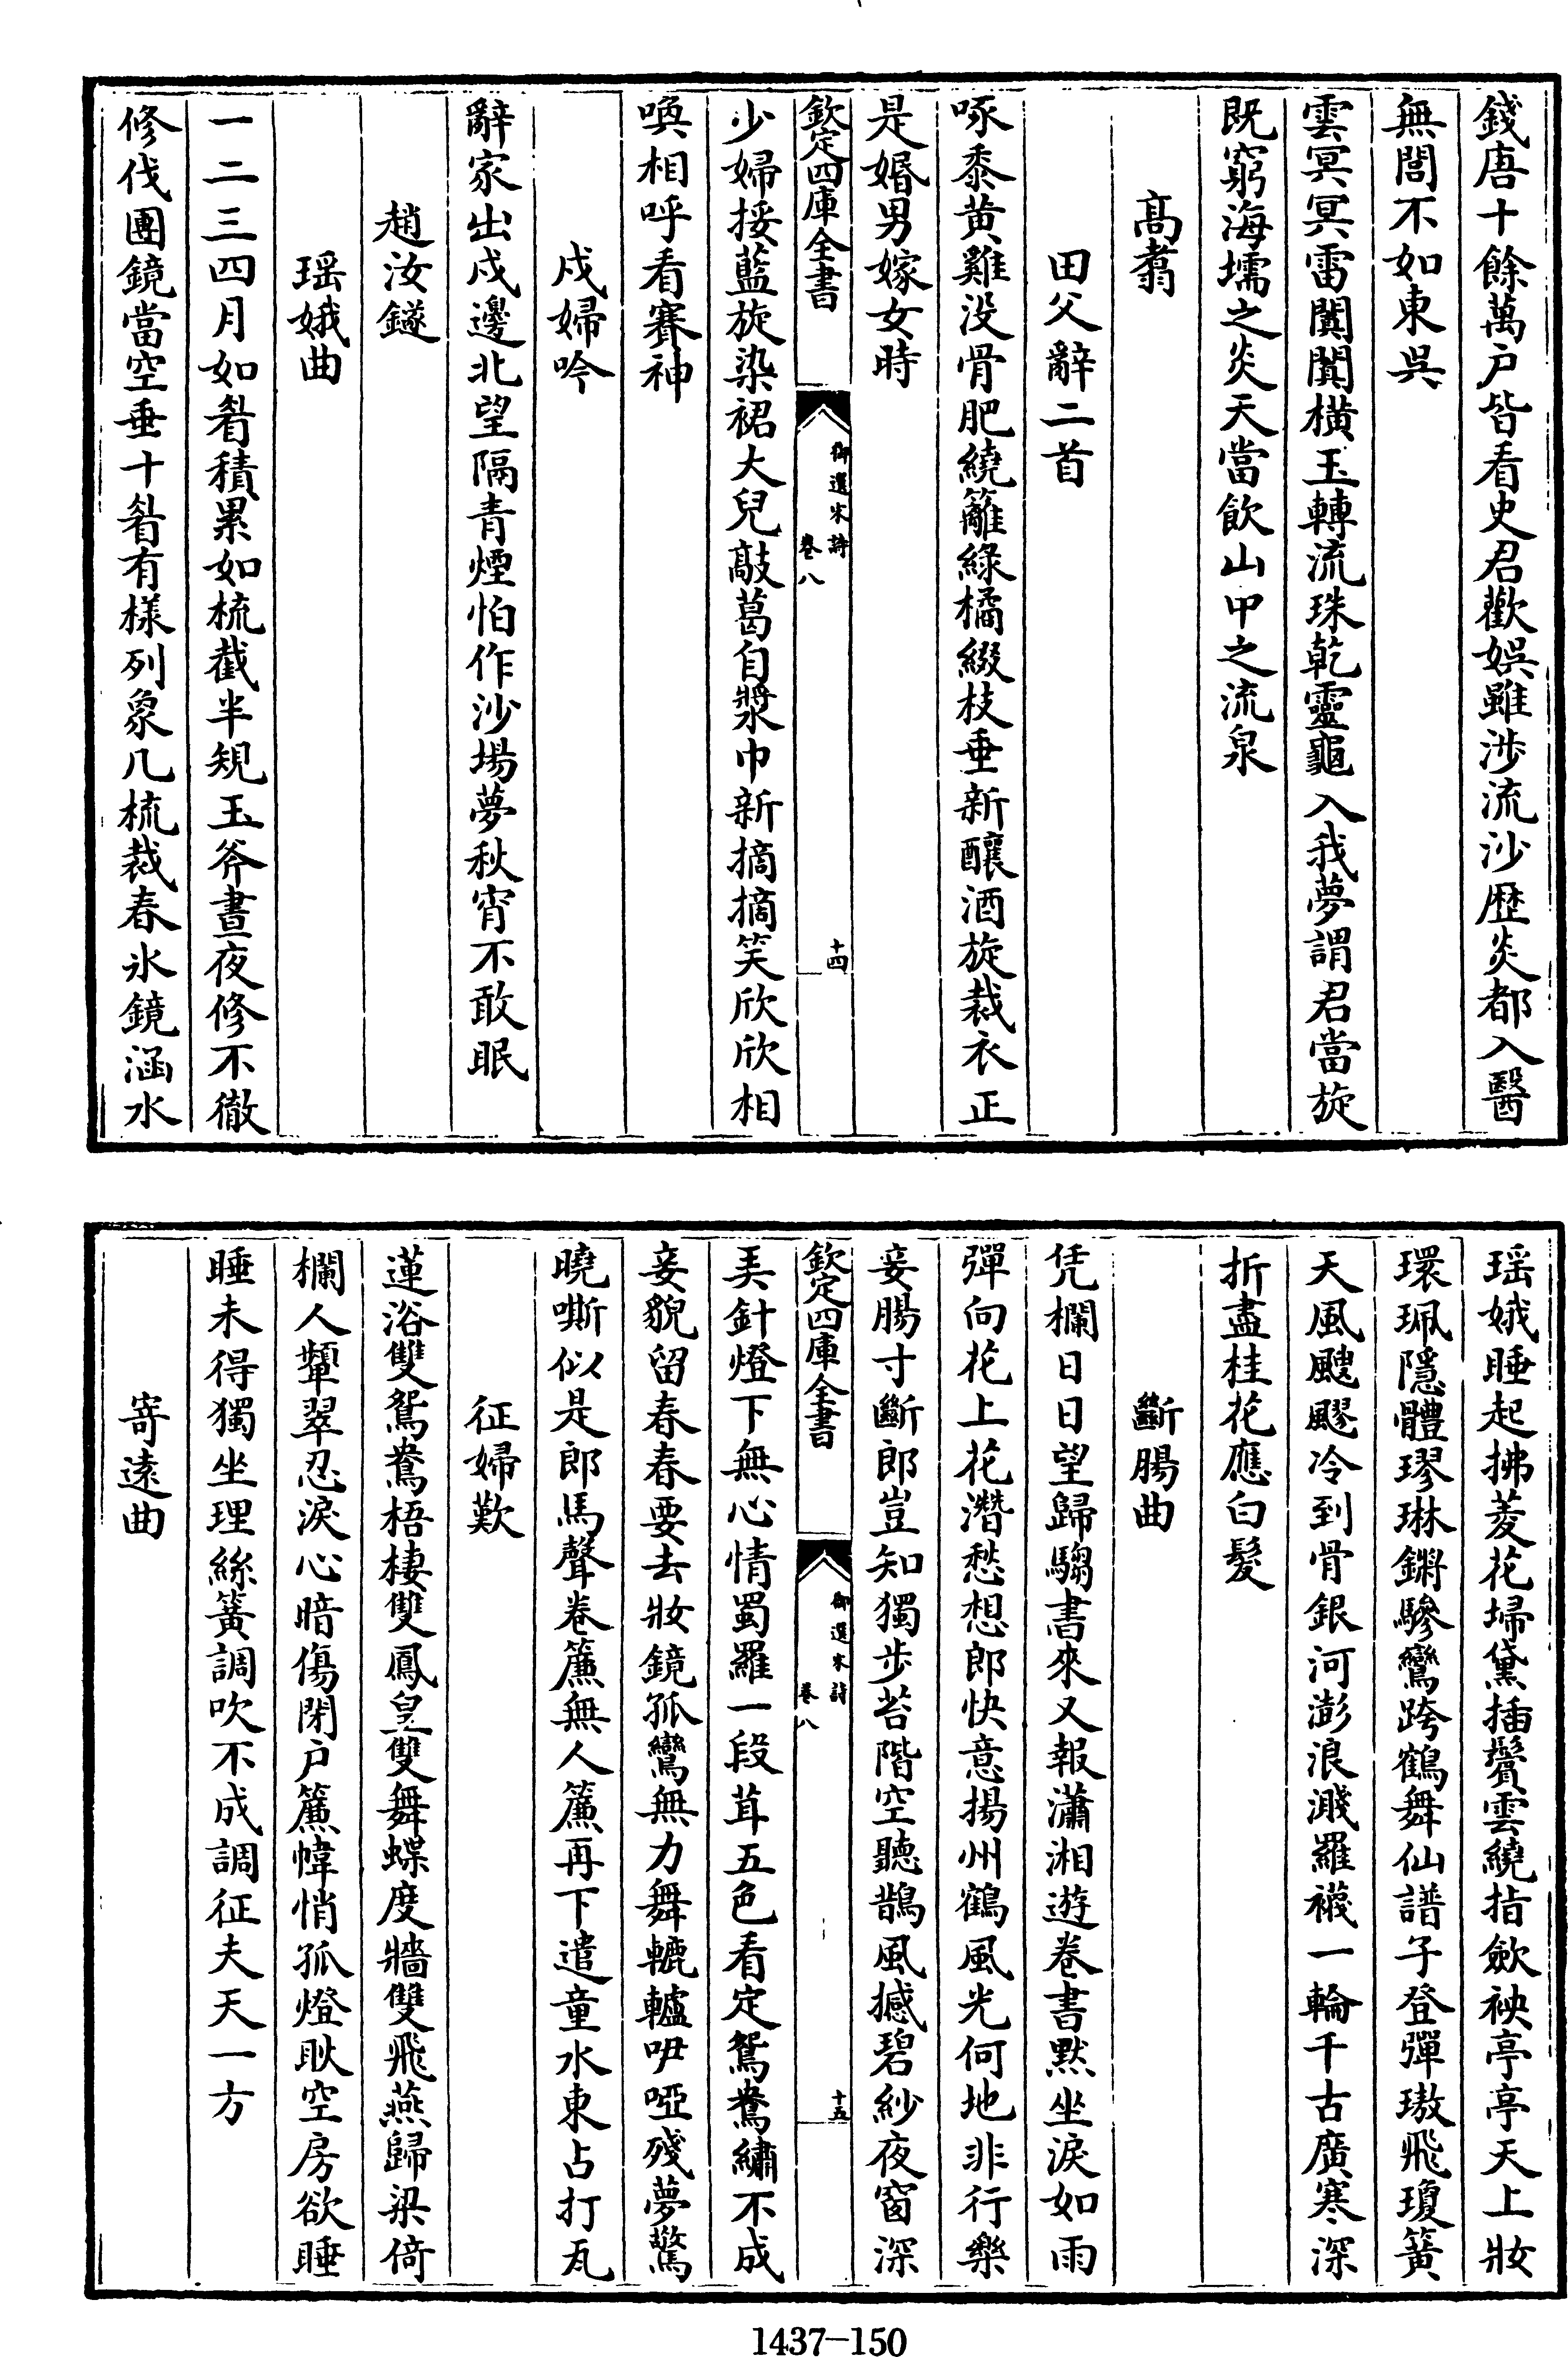 錢唐十餘萬户皆看史君歡娯雖渉流沙歴炎都入醫
無閭不如東吳
雲冥冥雷闐闐横玉轉流珠乾靈龜入我夢謂君當旋
既窮海壖之炎天當飲山甲之流泉
髙翥
田父辭二首
啄黍黄雞没骨肥繞籬綠橘綴枝垂新釀酒旋裁衣正
是婚男嫁女時
欽定四庫全書
御選宋詩
卷八
十四
少婦挼藍旋染裙大兒敲葛自漿巾新摘摘笑欣欣相
喚相呼看賽神
戍婦吟
辭家出戍邊北望隔青煙怕作沙場夢秋宵不敢眠
趙汝鐩
瑶娥曲
一二三四月如眉積累如梳截半規玉斧晝夜修不徹
修伐團鏡當空垂十眉有様列象几梳裁春氷鏡涵水
瑶娥睡起拂菱花埽黛插鬢雲繞指歛袂亭亭天上妝
環珮隱體璆琳鏘驂鸞跨鶴舞仙譜子登彈璈飛瓊簧
天風颼飂冷到骨銀河澎浪濺羅襪一輪千古廣寒深
折盡桂花應白髮
斷腸曲
凭欄日日望歸騶書來又報瀟湘遊卷書黙坐淚如雨
彈向花上花潛愁想郎快意揚州鶴風光何地非行樂
妾腸寸斷郎豈知獨步苔階空聽鵲風撼碧紗夜窗深
欽定四庫全書
御選宋詩
卷八
十五
弄針燈下無心情蜀羅一段茸五色看定鴛鴦繡不成
妾貌留春春要去妝鏡孤鸞無力舞轆轤咿啞殘夢驚
曉嘶似是郎馬聲卷簾無人簾再下遣童水東占打瓦
征婦歎
蓮浴雙鴛鴦梧棲雙鳳皇雙舞蝶度牆雙飛燕歸梁倚
欄人顰翠忍淚心暗傷閉户簾幃悄孤燈耿空房欲睡
睡未得獨坐理絲簧調吹不成調征夫天一方
寄逺曲
1437-150